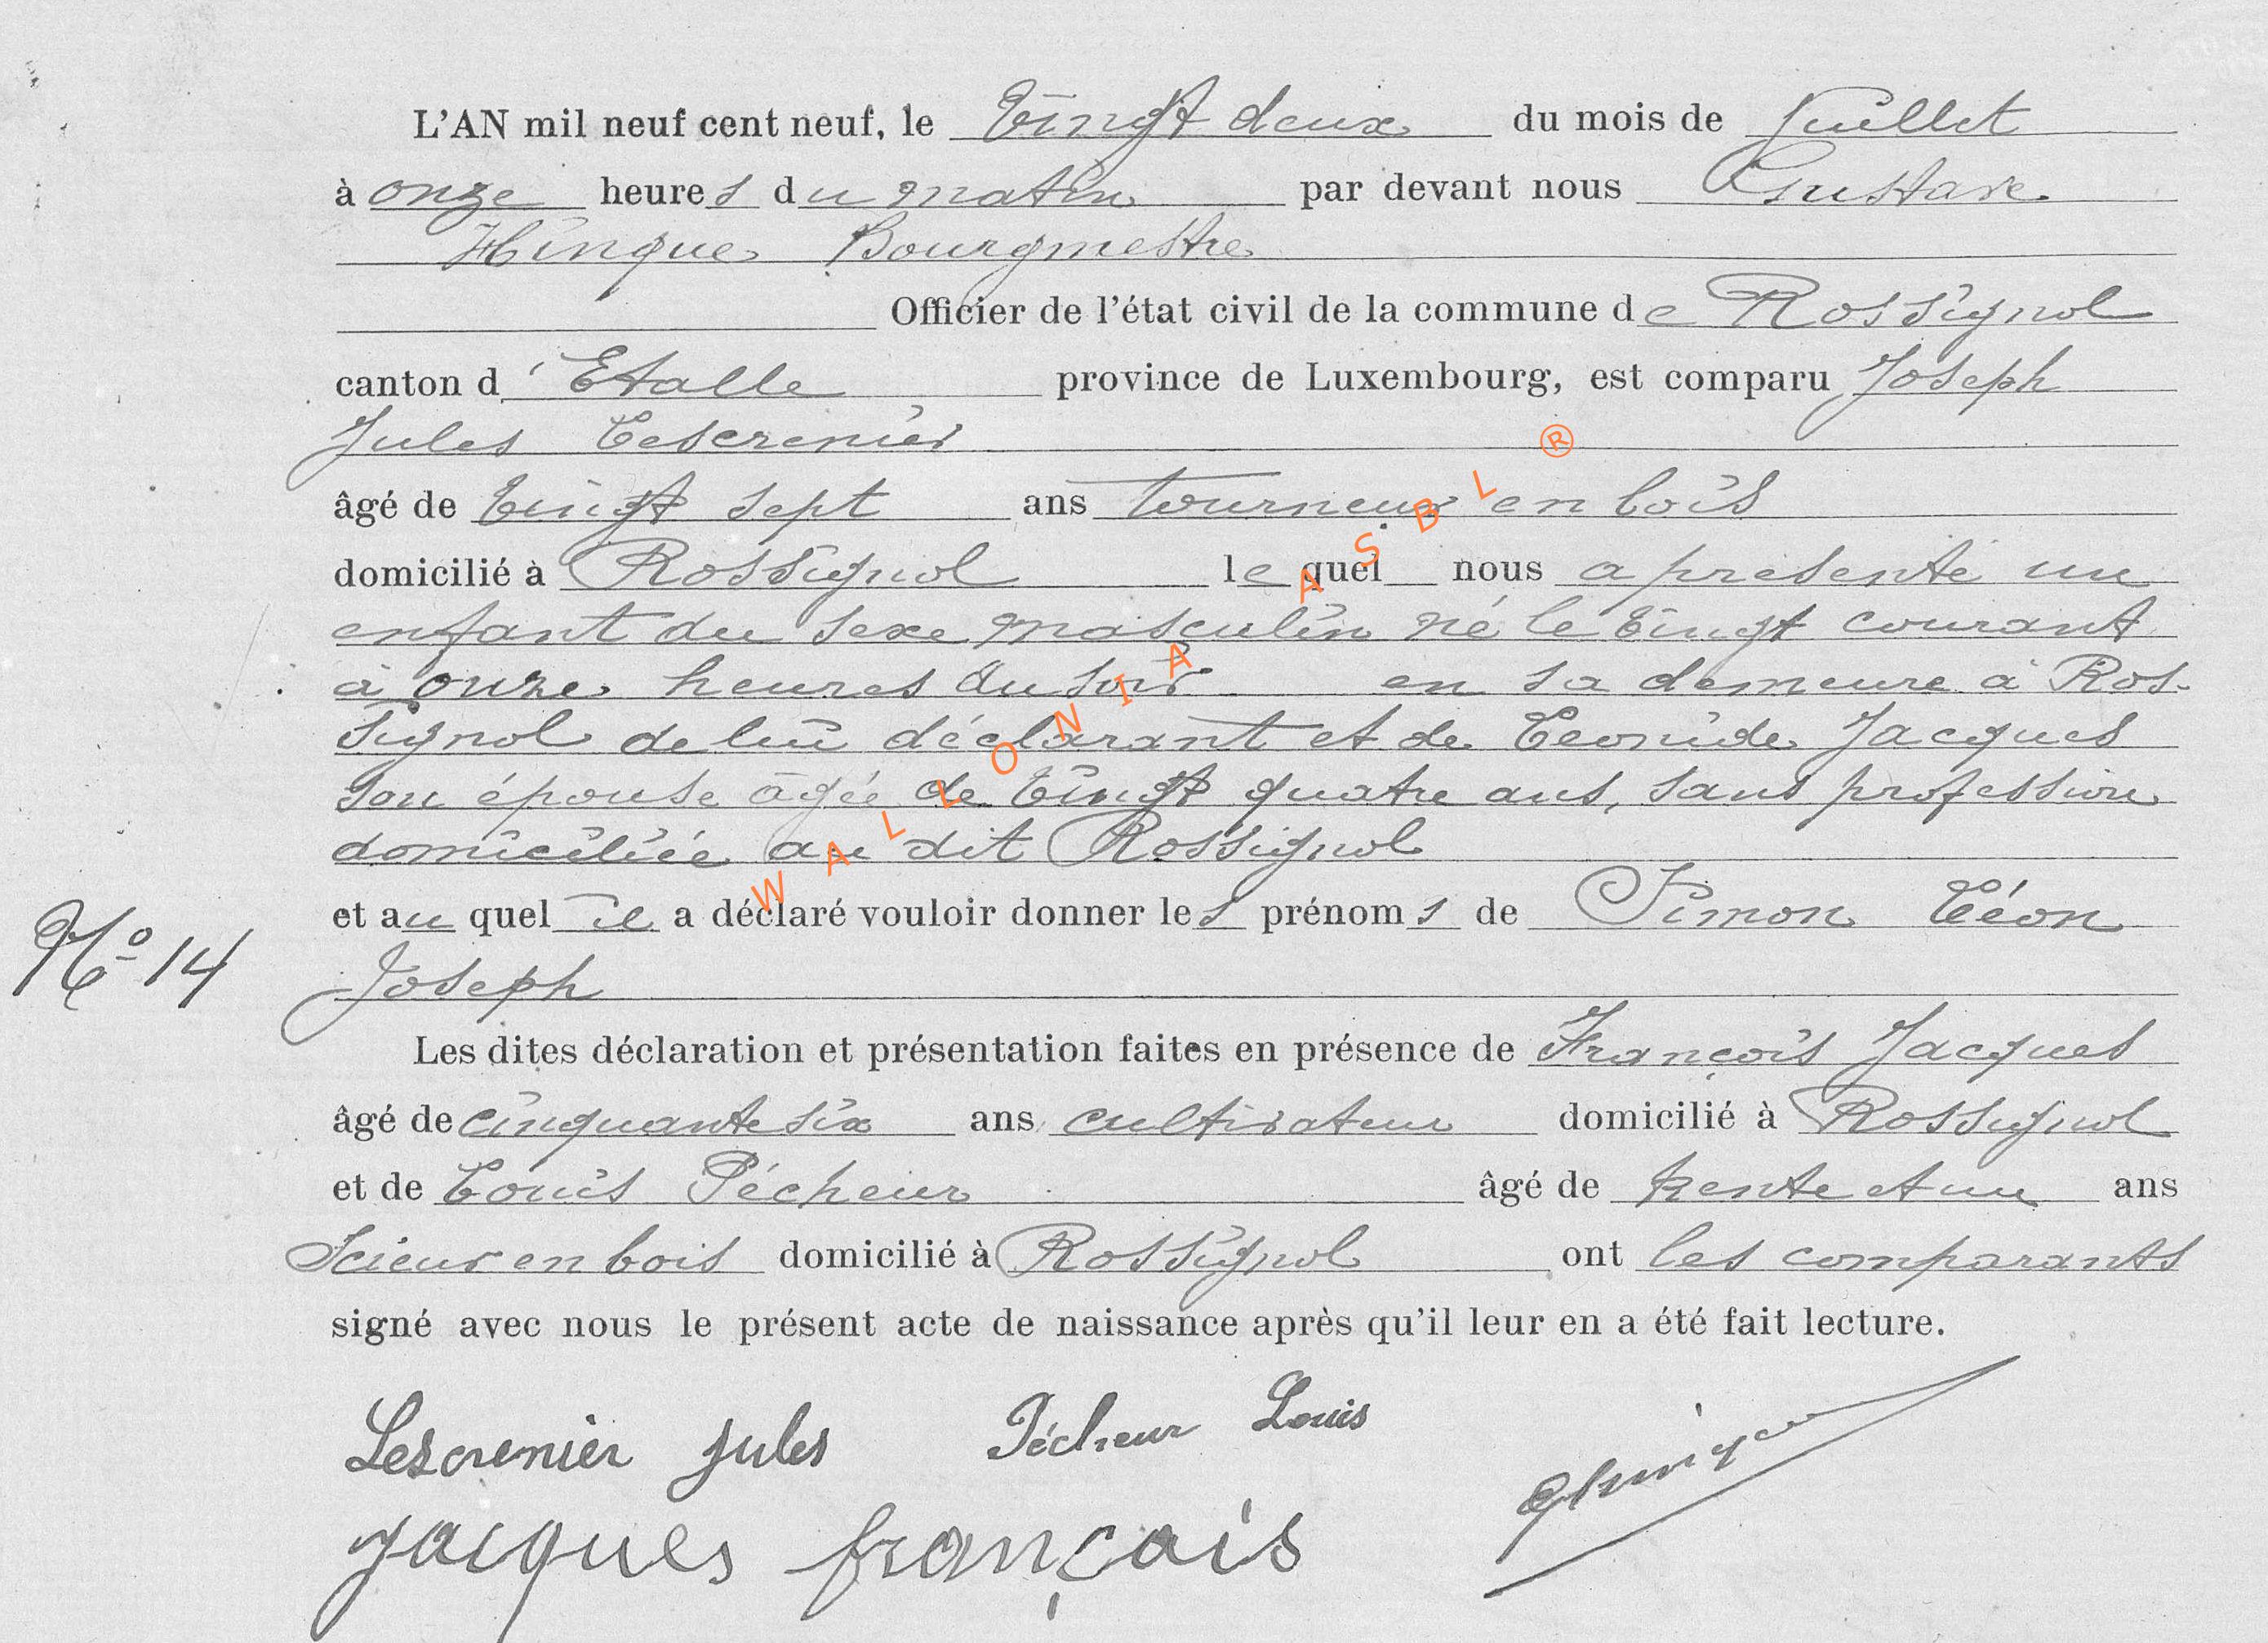 L'AN mil neuf cent neuf, le Vingt deux du mois de Juillet
à onze heures du matin par devant nous Gustave
Hinque Bourgmestre
Officier de l'état civil de la commune de Rossignol
canton d'Etalle province de Luxembourg, est comparu Joseph
Jules Lescrenier
âgé de Vingt sept ans tourneur en bois
domicilié à Rossignol lequel nous a présenté un
enfant du sexe masculin né le Vingt courant
à onze heures du soir en sa demeure à Ros-
signol de lui déclarant et de Léonide Jacques
son épouse âgée de Vingt quatre ans, sans profession
domiciliée au dit Rossignol
et au quel il a déclaré vouloir donner les prénoms de Simon Léon
N° 14
Joseph
Les dites déclaration et présentation faites en présence de François Jacques
âgé de cinquante six ans cultivateur domicilié à Rossignol
et de Louis Pécheur âgé de trente et un ans
Scieur en bois domicilié à Rossignol ont les comparants
signé avec nous le présent acte de naissance après qu'il leur en a été fait lecture.
Lescrenier Jules Pécheur Louis
Jacques françois
WALLONIA ASBL ®